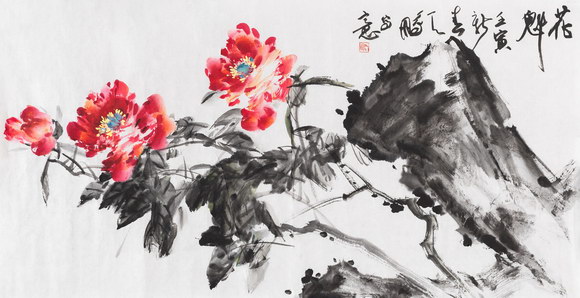 花魁 壬寅新春天鹏写意